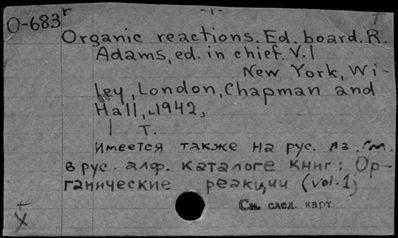 O-683г
Organic reactions. Ed. board. R.
Adams, ed. in chief. V. I
New York, Wi-
ley, London, Chapman and
Hall, 1942,
1 т.
Имеется также на рус. яз. См.
в рус. алф. каталоге книг: Ор-
ганические реакции (vol. 1)
См. след. карт.